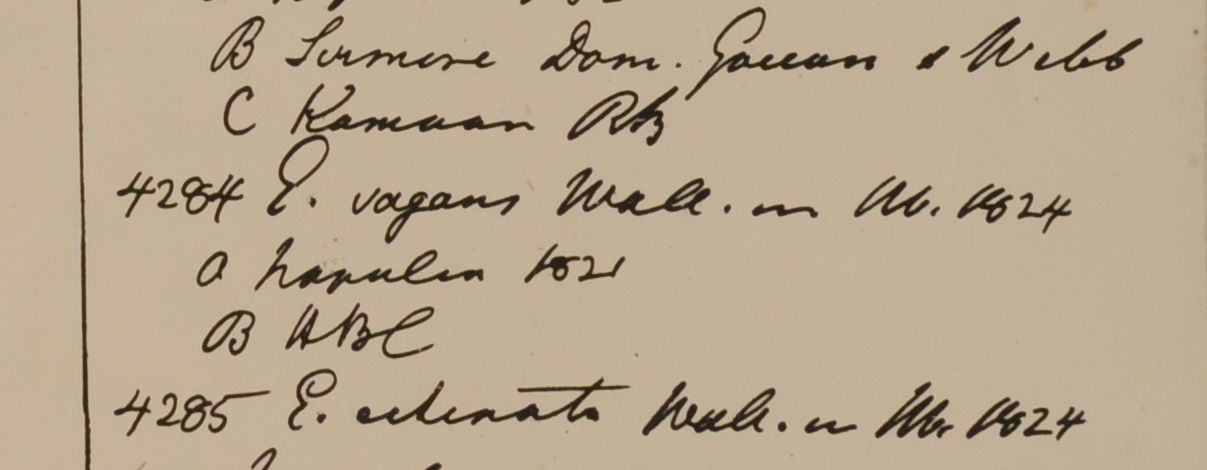 B Sirmore Dom. Govan & Webb
C Kamaon RB
4284 E. vagans Wall. in Hb. 1824
a Napalia 1821
B HBC
4285 E. echinata Wall. in Hb. 1824